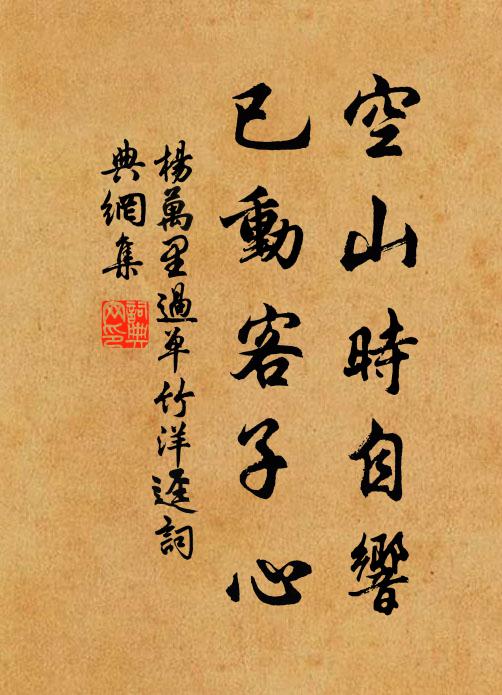 空山時自響
已動客子心
楊萬里過單竹洋逕詞
典網集
詞典
网印